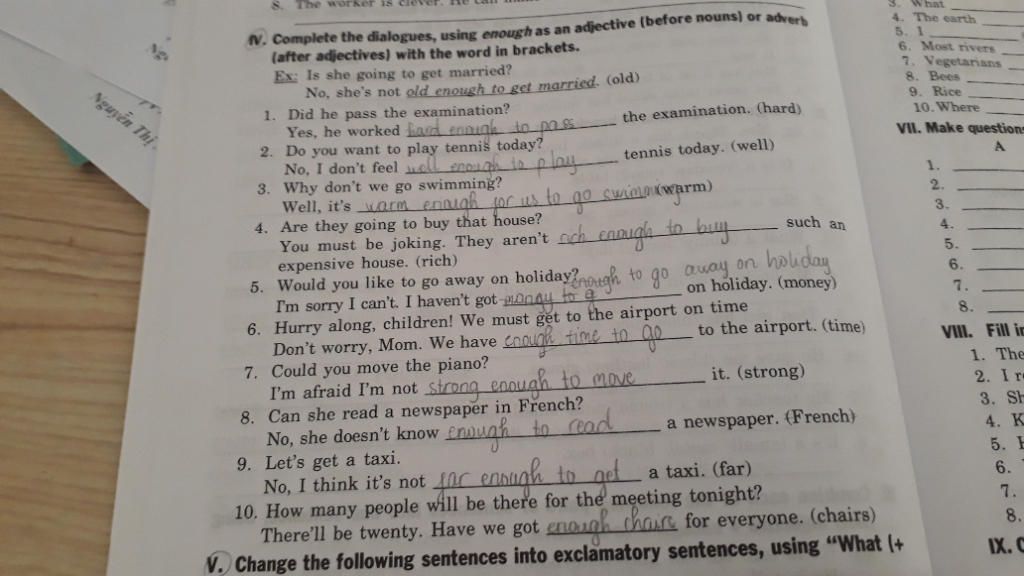 8. The worker is clever. He can
IV. Complete the dialogues, using enough as an adjective (before nouns) or adverb
(after adjectives) with the word in brackets.
Ex: Is she going to get married?
No, she's not old enough to get married. (old)
1. Did he pass the examination?
Yes, he worked hard enough to pass the examination. (hard)
2. Do you want to play tennis today?
No, I don't feel well enough to play tennis today. (well)
3. Why don't we go swimming?
Well, it's warm enough for us to go swimming (warm)
4. Are they going to buy that house?
You must be joking. They aren't rich enough to buy such an
expensive house. (rich)
5. Would you like to go away on holiday?
enough to go away on holiday
I'm sorry I can't. I haven't got money to g on holiday. (money)
6. Hurry along, children! We must get to the airport on time
Don't worry, Mom. We have enough time to go to the airport. (time)
7. Could you move the piano?
I'm afraid I'm not strong enough to move it. (strong)
8. Can she read a newspaper in French?
No, she doesn't know enough to read a newspaper. (French)
9. Let's get a taxi.
No, I think it's not far enough to get a taxi. (far)
10. How many people will be there for the meeting tonight?
There'll be twenty. Have we got enough chairs for everyone. (chairs)
V. Change the following sentences into exclamatory sentences, using "What (+
Nguyễn Thị
3. What
4. The earth
5. I
6. Most rivers
7. Vegetarians
8. Bees
9. Rice
10. Where
VII. Make questions
A
1.
2.
3.
4.
5.
6.
7.
8.
VIII. Fill in
1. The
2. I
3. Sh
4. K
5.
6.
7.
8.
IX.